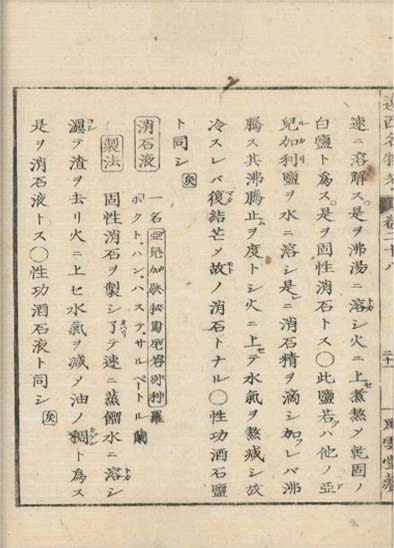 速ニ溶解ス。是ヲ沸湯ニ溶シ火ニ上煮熬メ乾固ノ
白鹽ト為ス。是ヲ固性消石トス〇此鹽若クハ他ノ亞
兒加利鹽ヲ水ニ溶シ是ニ消石精ヲ滴シ加フレバ沸
騰ス其沸騰止ヲ度トシ火ニ上テ水氣ヲ熬減シ放
冷スレバ復結芒メ故ノ消石トナル〇性功酒石鹽
ト同シ
消石液 一名
ボクト、ハン、ハステ、サルペートル 蘭
製法 固性消石ヲ製シ了テ速ニ蒸餾水ニ溶シ
濾テ渣ヲ去リ火ニ上セ水氣ヲ減メ油ノ稠ト為ス
是ヲ消石液トス〇性功酒石液ト同シ
遠西名物考 卷二十八
風雲堂藏